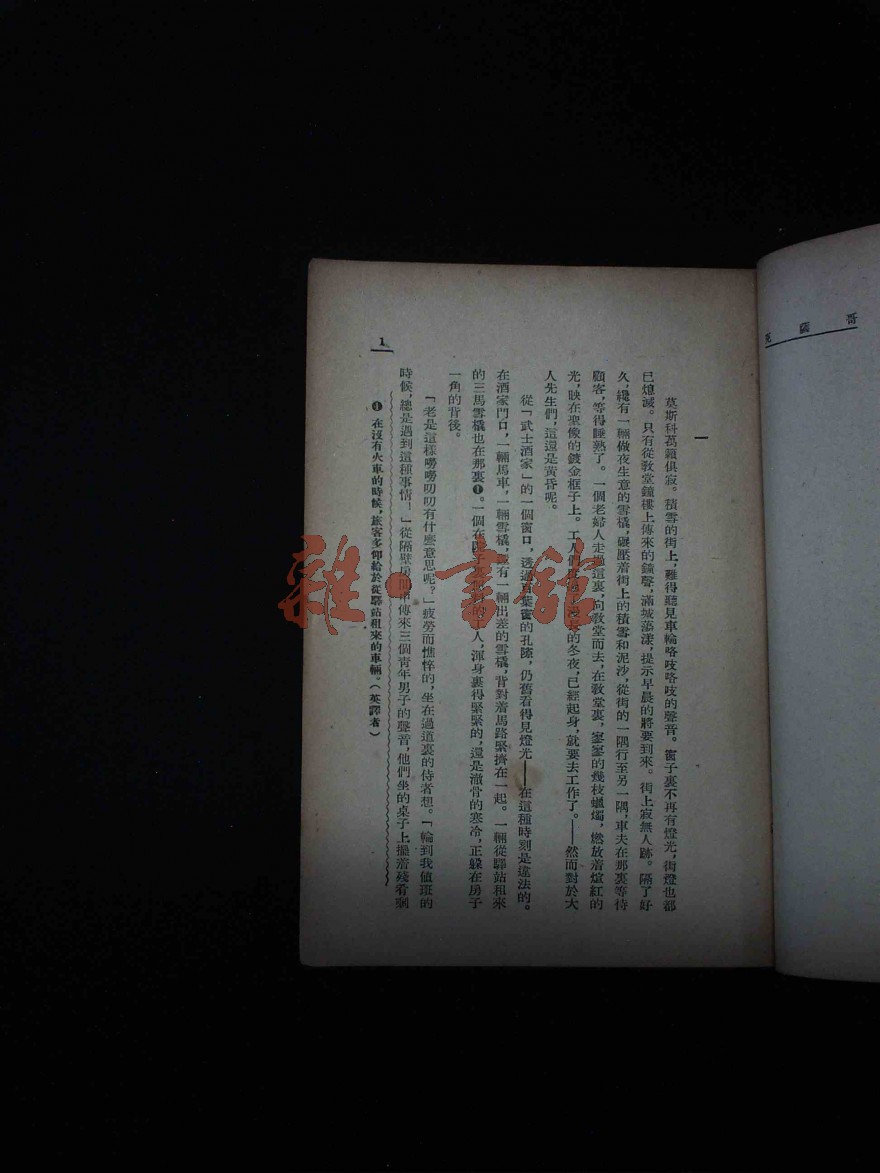 哥薩克
一
莫斯科萬籟俱寂。積雪的街上，難得聽見車輪咯吱咯吱的聲音。窗子裏不再有燈光，街燈也都
已熄滅。只有從教堂鐘樓上傳來的鐘聲，滿城蕩漾，提示早晨的將要到來。街上寂無人跡。隔了好
久，纔有一輛做夜生意的雪橇，碾壓着街上的積雪和泥沙，從街的一隅行至另一隅，車夫在那裏等待
顧客，等得睡熟了。一個老婦人走過這裏，向教堂而去，在教堂裏，寥寥的幾枝蠟燭，燃放着煊紅的
光，映在聖像的鍍金框子上。工人們的冬夜，已經起身，就要去工作了。——然而對於大
人先生們，這還是黃昏呢。
從「武士酒家」的一個窗口，透過百葉窗的孔隙，仍舊看得見燈光——在這種時刻是違法的。
在酒家門口，一輛馬車，一輛雪橇，還有一輛出差的雪橇，背對着馬路緊擠在一起。一輛從驛站租來
的三馬雪橇也在那裏❶。一個在院子裏的工人，渾身裹得緊緊的，還是澈骨的寒冷，正躲在房子
一角的背後。
「老是這樣嘮嘮叨叨有什麼意思呢？」疲勞而憔悴的，坐在過道裏的侍者想。「輪到我值班的
時候，總是遇到這種事情！」從隔壁房間中傳來三個青年男子的聲音，他們坐的桌子上擺着殘肴剩
❶ 在沒有火車的時候，旅客多仰給於從驛站租來的車輛。（英譯者）
1
雜·書館